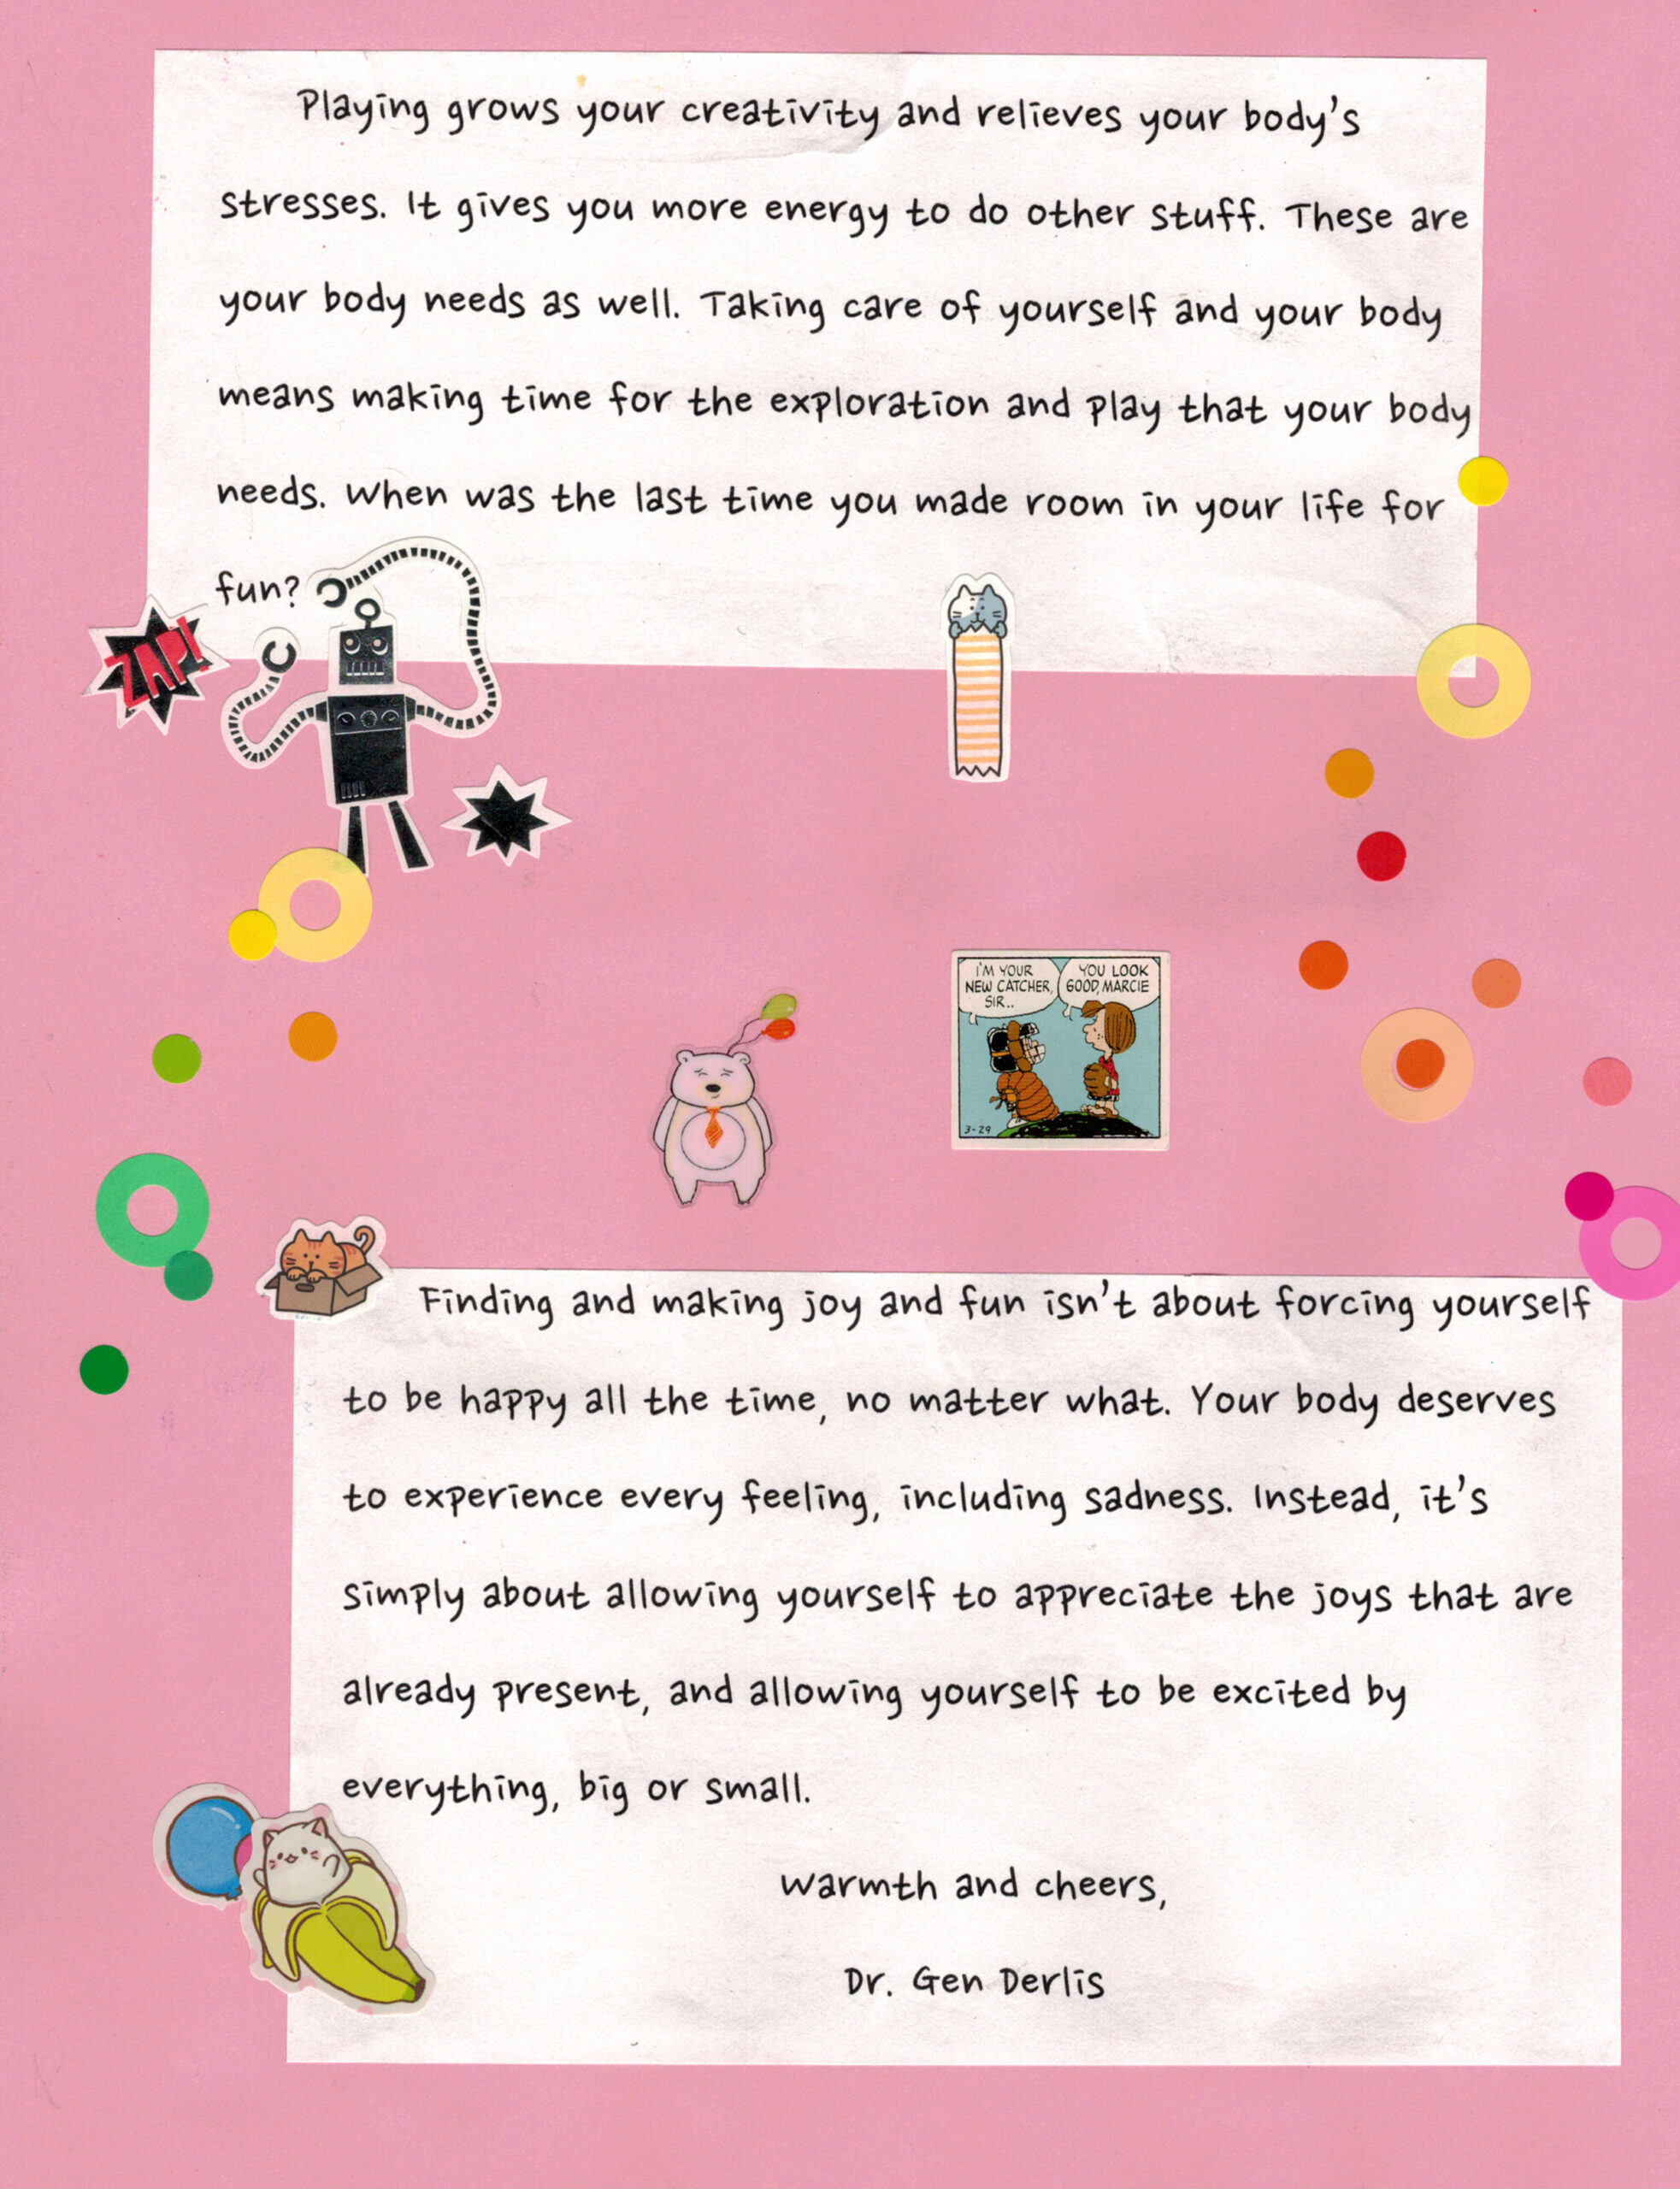 Playing grows your creativity and relieves your body's
stresses. It gives you more energy to do other stuff. These are
your body needs as well. Taking care of yourself and your body
means making time for the exploration and play that your body
needs. When was the last time you made room in your life for
fun?
ZAP!
I'M YOUR
NEW CATCHER,
SIR..
YOU LOOK
GOOD, MARCIE
3-29
Finding and making joy and fun isn't about forcing yourself
to be happy all the time, no matter what. Your body deserves
to experience every feeling, including sadness. Instead, it's
simply about allowing yourself to appreciate the joys that are
already present, and allowing yourself to be excited by
everything, big or small.
Warmth and cheers,
Dr. Gen Derlis